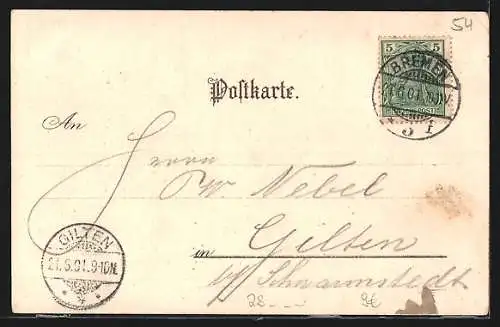 54
5 5
BREMEN
5 1
Postkarte.
An
Herrn
W. Nebel
in Gilten
b/ Schwarmstedt
GILTEN
21.6.01.9-10N.